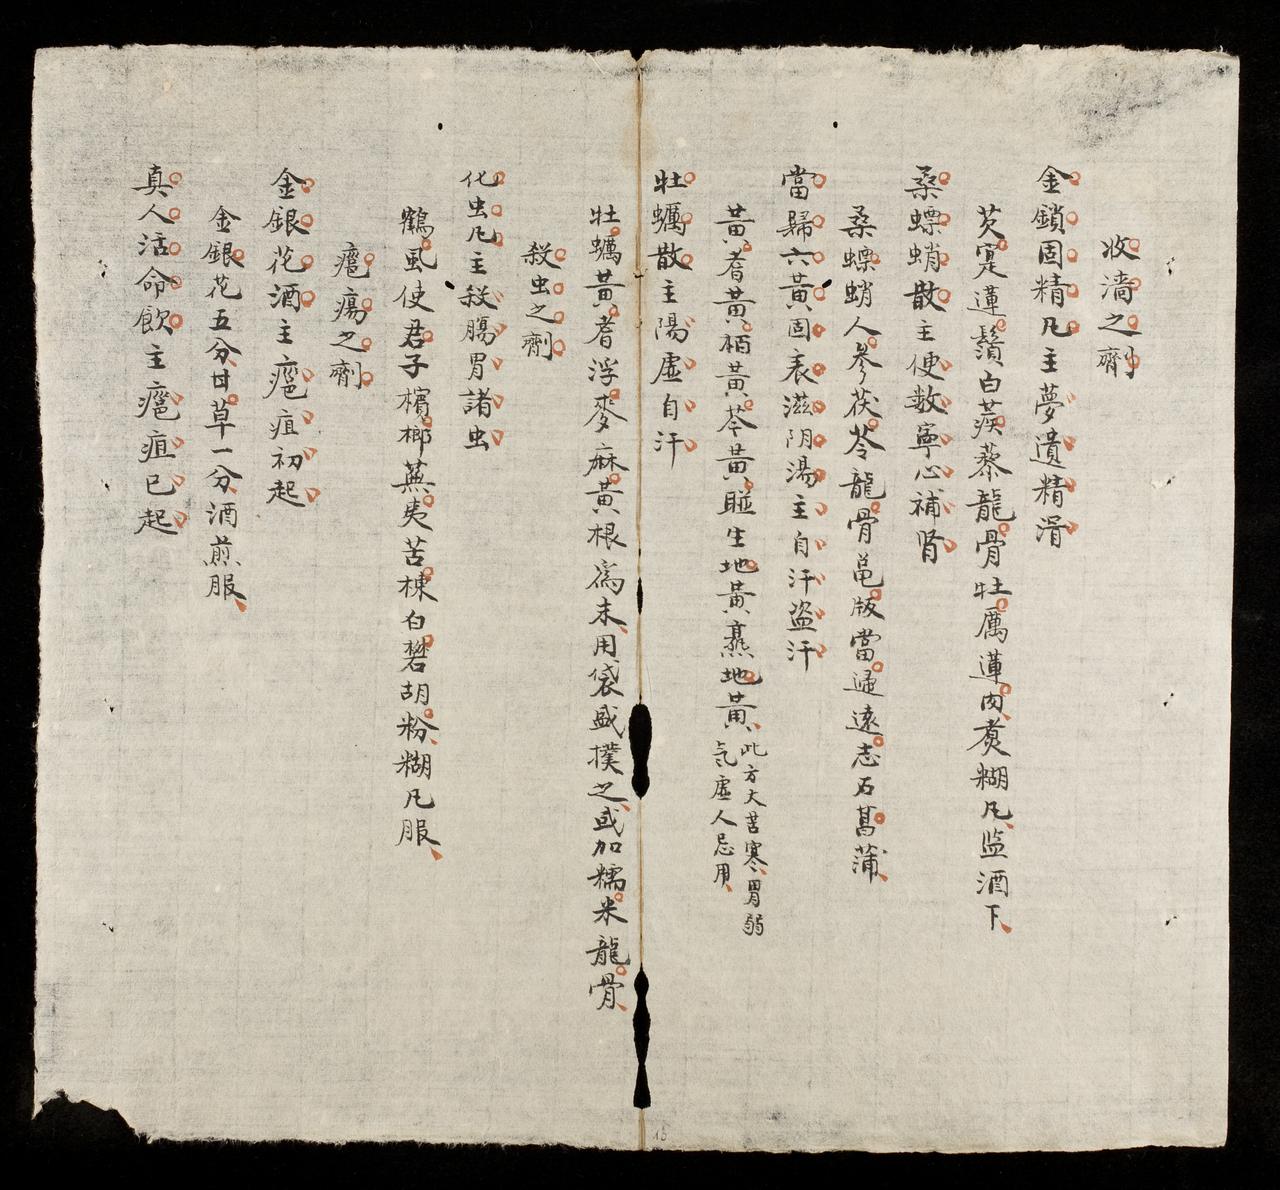 收濇之劑
金鎖固精凡主夢遺精滑
芡寔蓮鬚白蒺藜龍骨牡厲蓮肉煮糊凡監酒下
桑螵蛸散主便数寧心補肾
桑螵蛸人參茯苓龍骨黽版當逓遠志石菖蒲
當歸六黃固表滋阴湯主自汗盗汗
黃耆黃栢黃芩黃䀴生地黃熟地黃此方大苦寒胃弱
気虛人忌用
牡蠣散主陽虛自汗
牡蠣黃耆浮麥麻黃根為末用袋盛撲之或加糯米龍骨
殺虫之劑
化虫凡主殺腸胃諸虫
鶴風使君子檳榔蕪夷苦楝白礬胡粉糊凡服
癰瘍之劑
金銀花酒主癰疽初起
金銀花五分甘草一分酒煎服
真人活命飲主癰疽已起
15